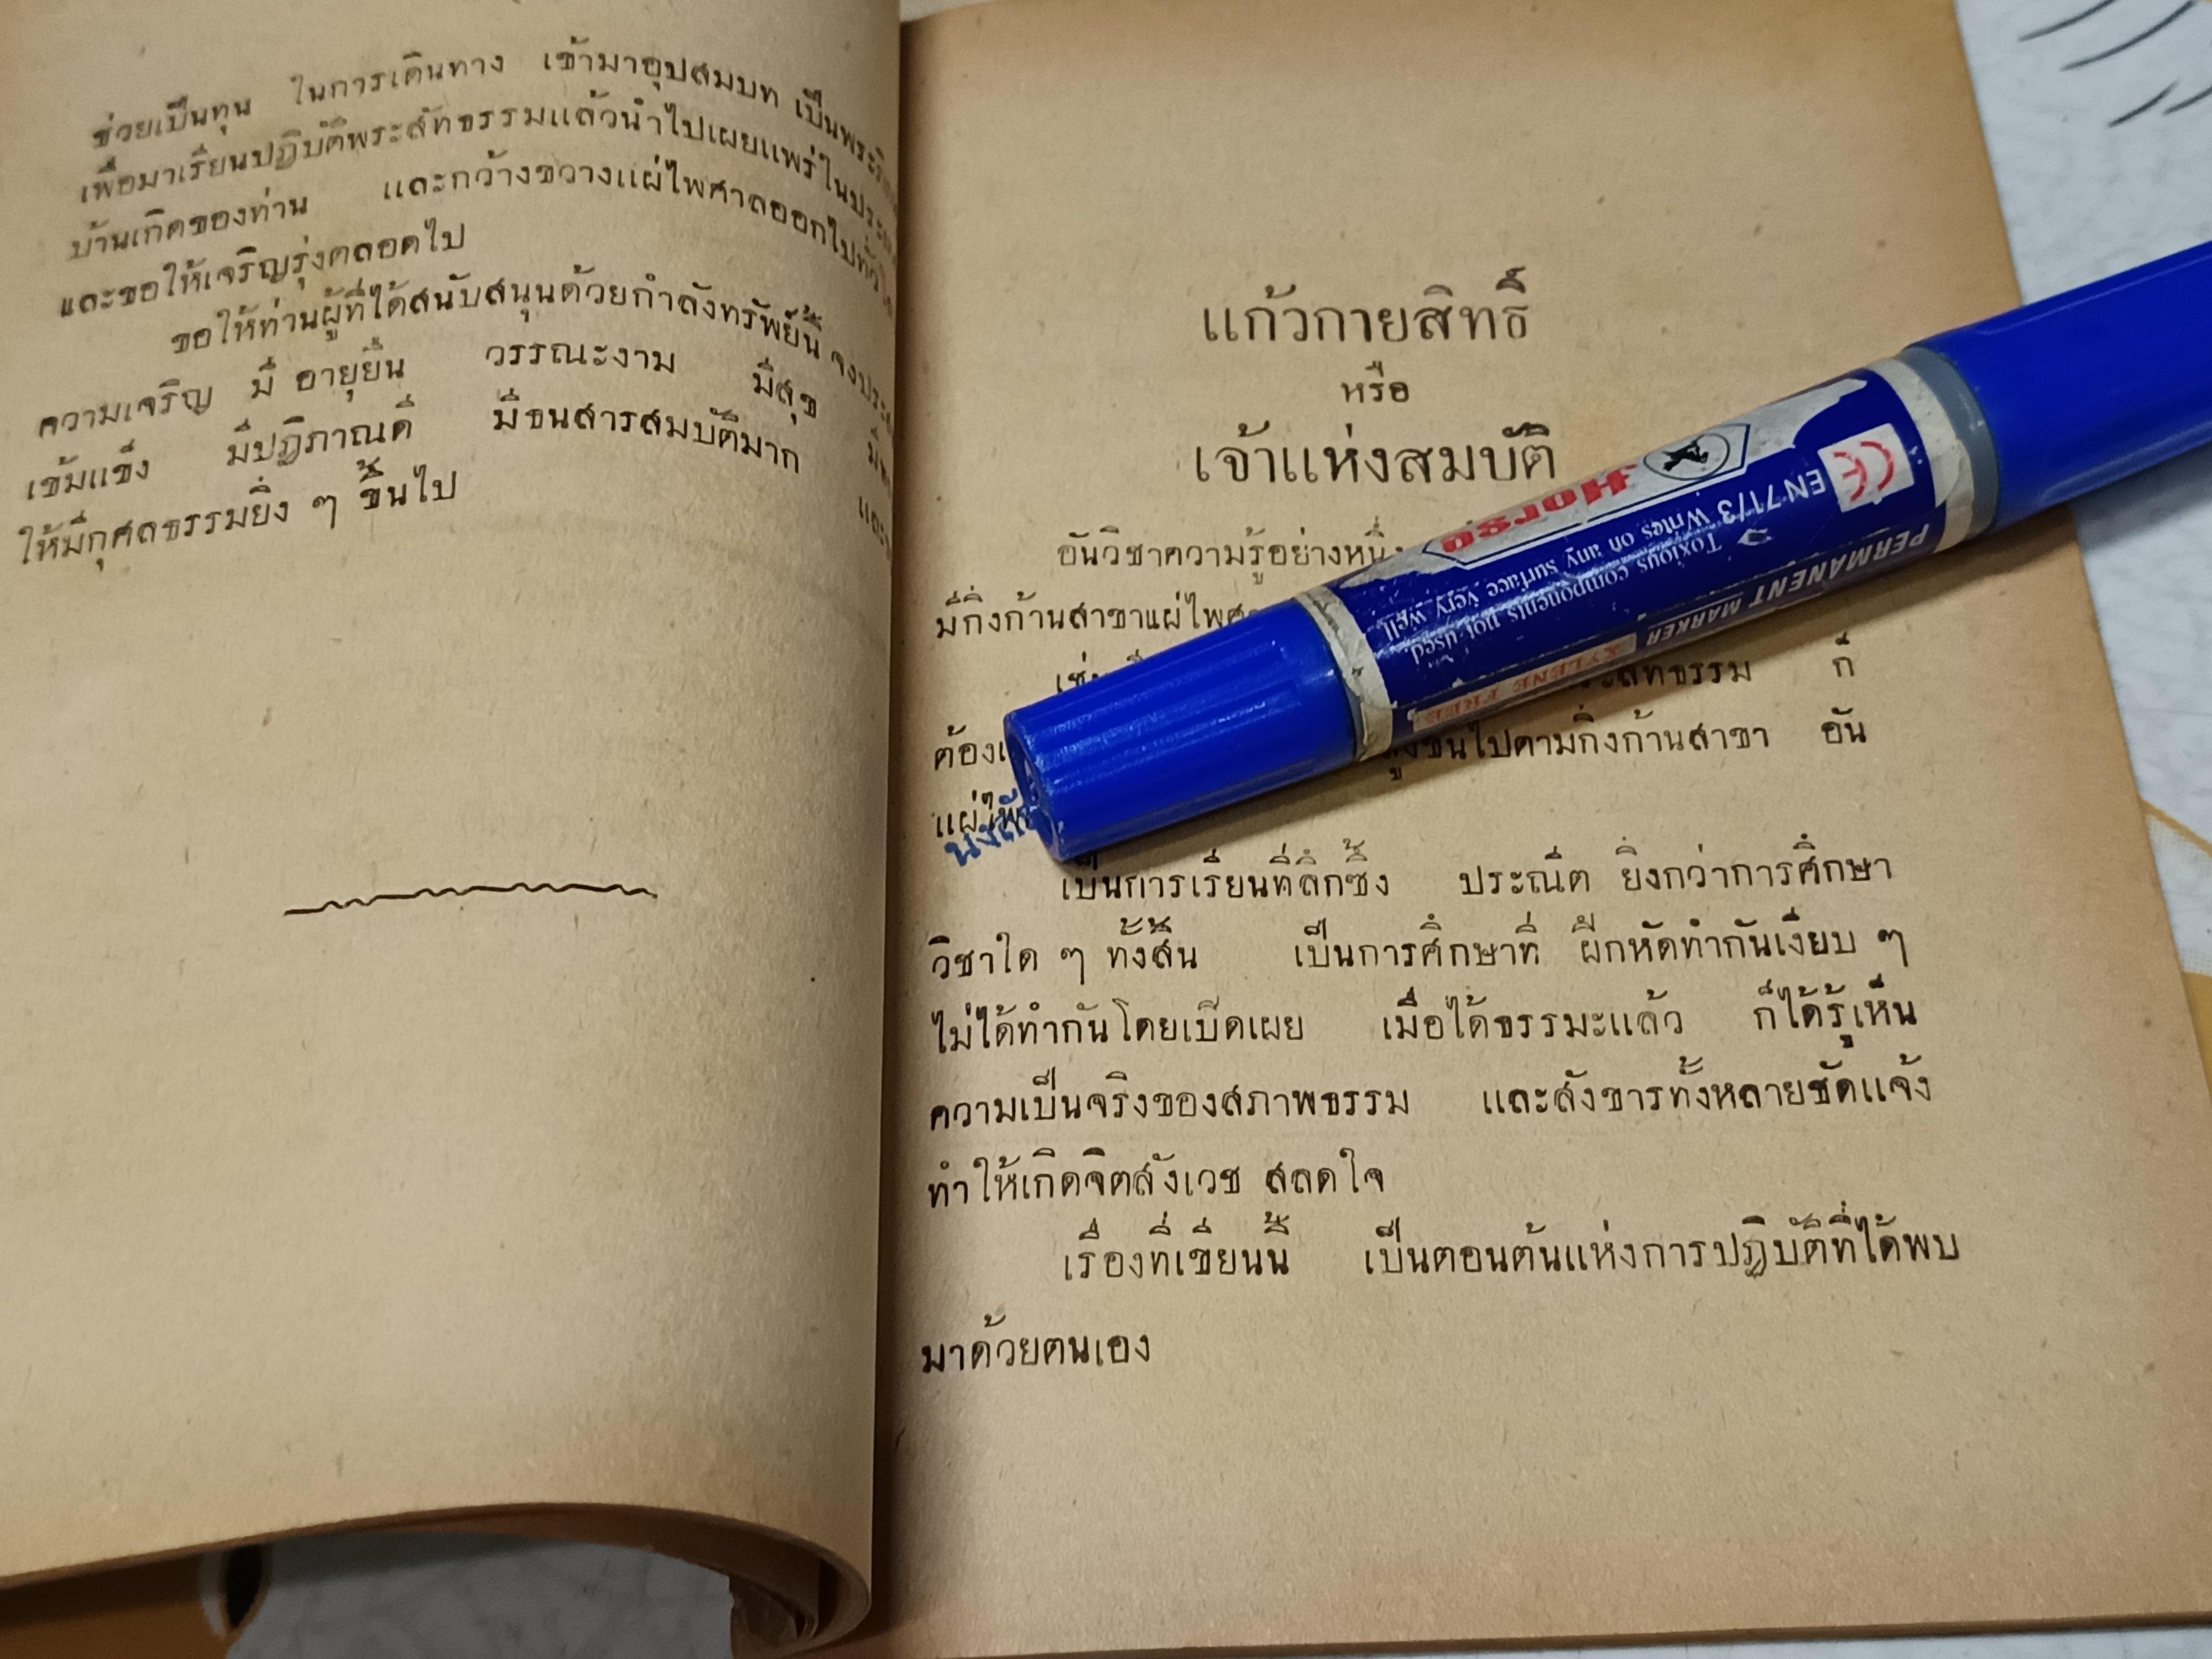 ช่วยเป็นทุน ในการเดินทาง เข้ามาอุปสมบท
เพื่อมาเรียนปฏิบัติพระสัทธรรมแล้วนำไปเผยแพร่ในประ
บ้านเกิดของท่าน และกว้างขวางแผ่ไพศาลออกไปทั่ว
และขอให้เจริญรุ่งตลอดไป
ขอให้ท่านผู้ที่ได้สนับสนุนด้วยกำลังทรัพย์นี้ จงประ
ความเจริญ มี อายุยืน วรรณะงาม มีสุข
เข้มแข็ง มีปฏิภาณดี มีธนสารสมบัติมาก
ให้มีกุศลธรรมยิ่ง ๆ ขึ้นไป
แก้วกายสิทธิ์
หรือ
เจ้าแห่งสมบัติ
อันวิชาความรู้อย่างหนึ่ง
มีกิ่งก้านสาขาแผ่ไพศ
สัทธรรม ก็
ต้อง ขึ้นไปตามกิ่งก้านสาขา อัน
แผ่ไพ
เป็นการเรียนที่ลึกซึ้ง ประณีต ยิ่งกว่าการศึกษา
วิชาใด ๆ ทั้งสิ้น เป็นการศึกษาที่ ฝึกหัดทำกันเงียบ ๆ
ไม่ได้ทำกันโดยเปิดเผย เมื่อได้ธรรมะแล้ว ก็ได้รู้เห็น
ความเป็นจริงของสภาพธรรม และสังขารทั้งหลายชัดแจ้ง
ทำให้เกิดจิตสังเวช สลดใจ
เรื่องที่เขียนนี้ เป็นตอนต้นแห่งการปฏิบัติที่ได้พบ
มาด้วยตนเอง
Horse
EN 71/3 Writes on any surface very well
Toxious components not used.
XYLENE FREE
PERMANENT MARKER
CE